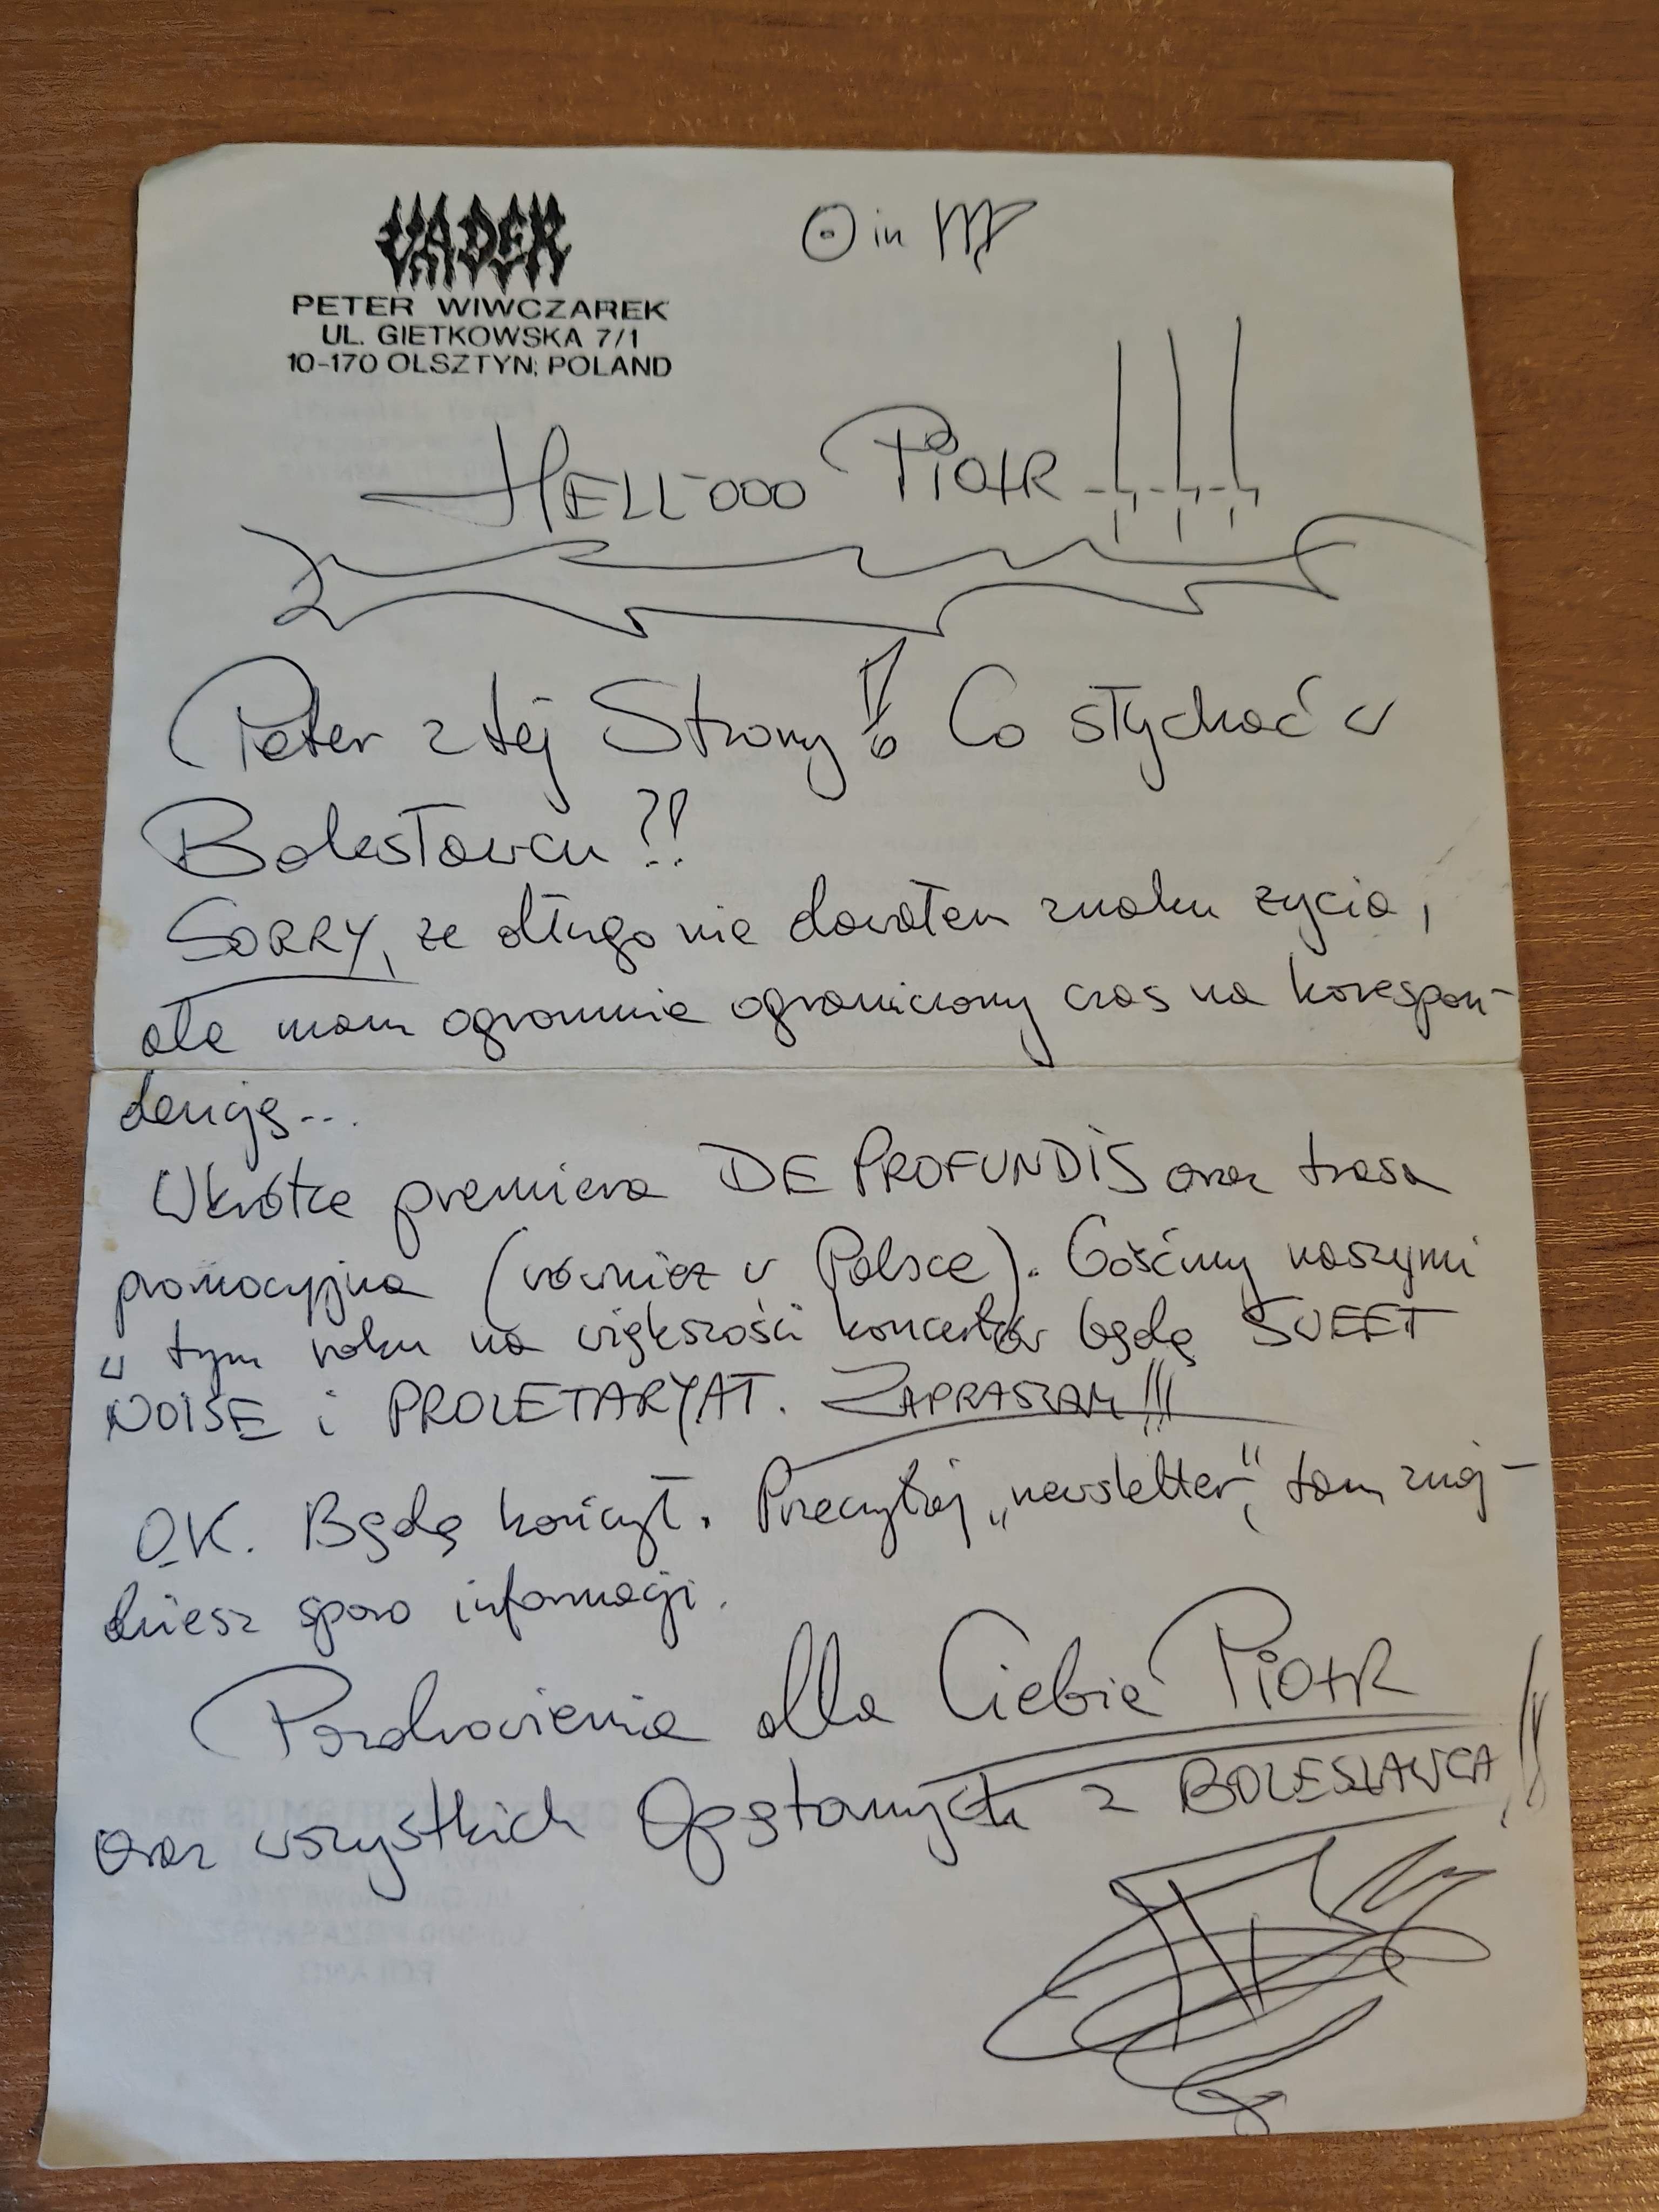 VADER
PETER WIWCZAREK
UL. GIETKOWSKA 7/1
10-170 OLSZTYN; POLAND
☉ in ♍
HELL-OOO PiOtR !!!
Peter z tej Strony! Co słychać w
Bolesławcu?!
SORRY, że długo nie dawałem znaku życia,
ale mam ogromnie ograniczony czas na korespon-
dencję...
Wkrótce premiera DE PROFUNDiS oraz trasa
promocyjna (również w Polsce). Gośćmy naszymi
w tym roku na większości koncertów będą SWEET
NOiSE i PROLETARYAT. ZAPRASZAM!!!
O.K. Będę kończył. Przeczytaj „newsletter", tam znaj-
dziesz sporo informacji.
Pozdrowienia dla Ciebie PiOtR
oraz wszystkich Opętanych z BOLESŁAWCA!!